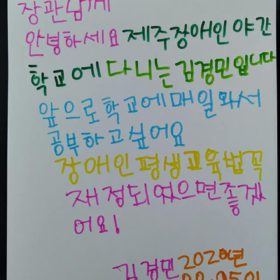 장관님께
안녕하세요 제주장애인야간
학교에 다니는 김경민입니다
앞으로 학교에 매일와서
공부하고 싶어요
장애인평생교육법꼭
재정되었으면좋겠
어요!
김경민 2020년